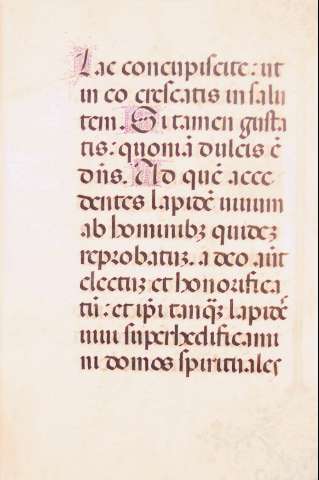 Lac concupiscite: ut
in eo crescatis in salu
tem. Si tamen gusta
tis: quoniā dulcis ē
dn̄s. Ad quē acce
dentes lapidē uiuum
ab hominibꝫ quidēꝫ
reprobatuꝫ. a deo aūt
electuꝫ et honorifica
tū: et ip̄i tanqꝫ lapidē
uiui superhedificami
ni domos spirituales